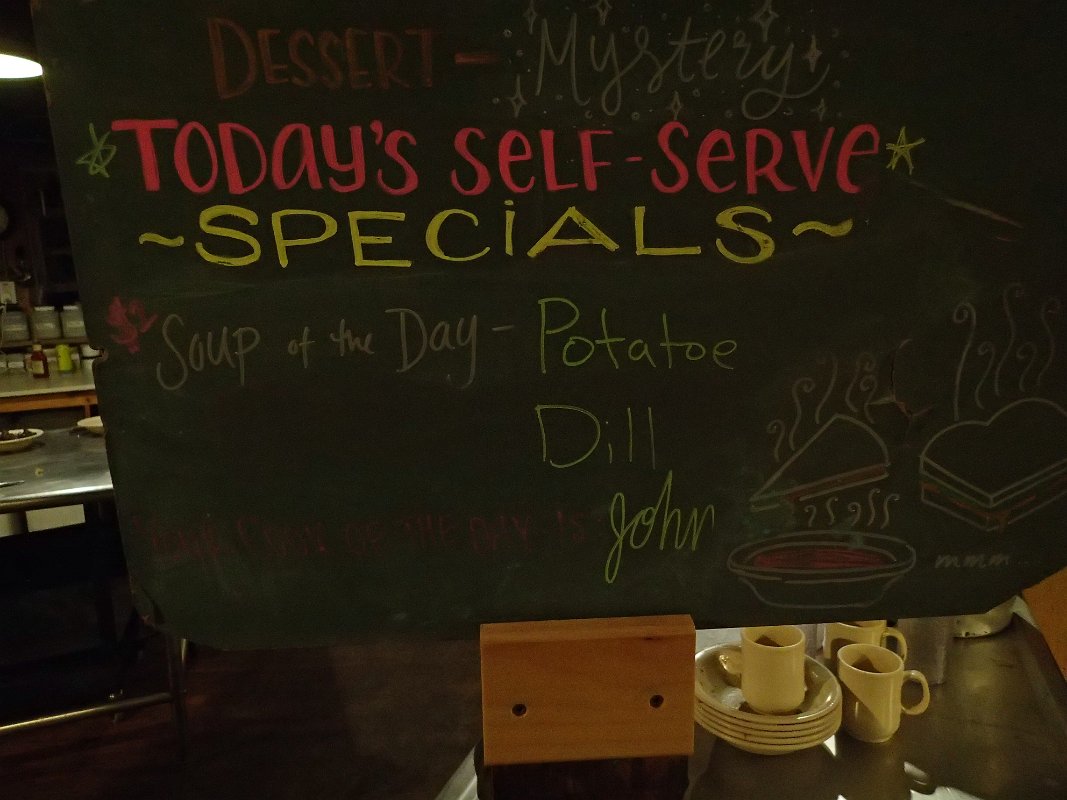 DESSERT - Mystery
TODAY'S SELF-SERVE
~SPECIALS~
Soup of the Day - Potatoe
Dill
YOUR COOK OF THE DAY IS John
mmm...